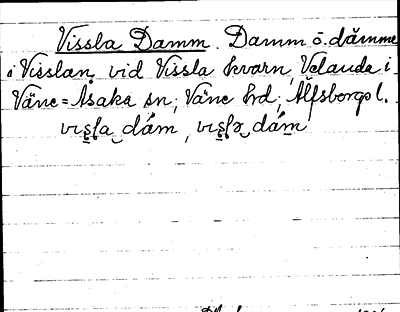 Vissla Damm. Damm o. dämme
i Visslan vid Vissla kvarn, Velanda i
Väne=Åsaka sn; Väne hd; Älfsborgs l.